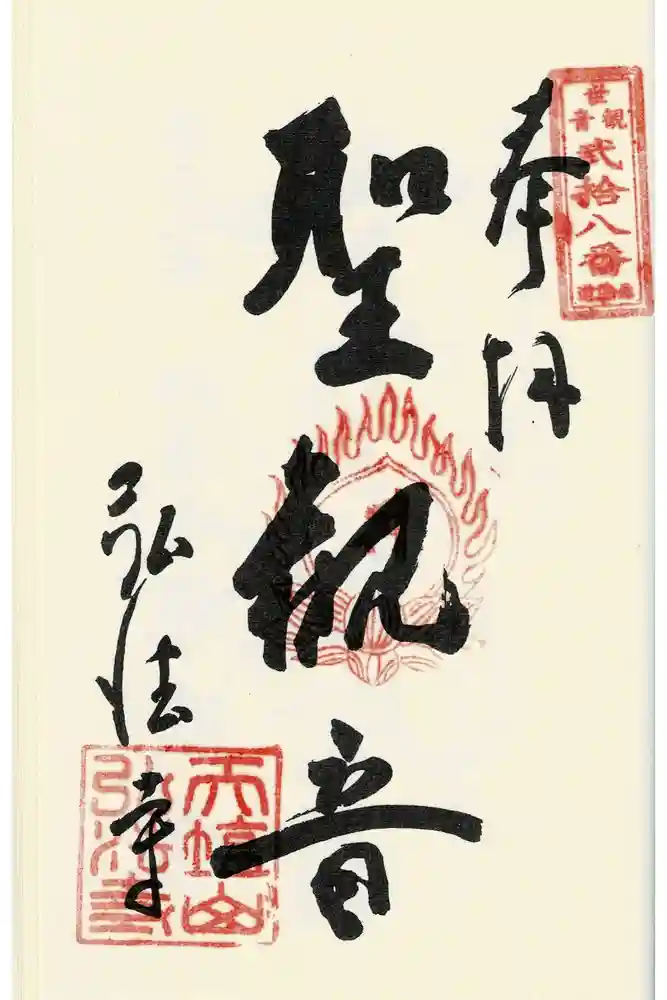 世
音觀
弍拾八番
奉拝
聖観音
弘法寺
天
山
弘法寺